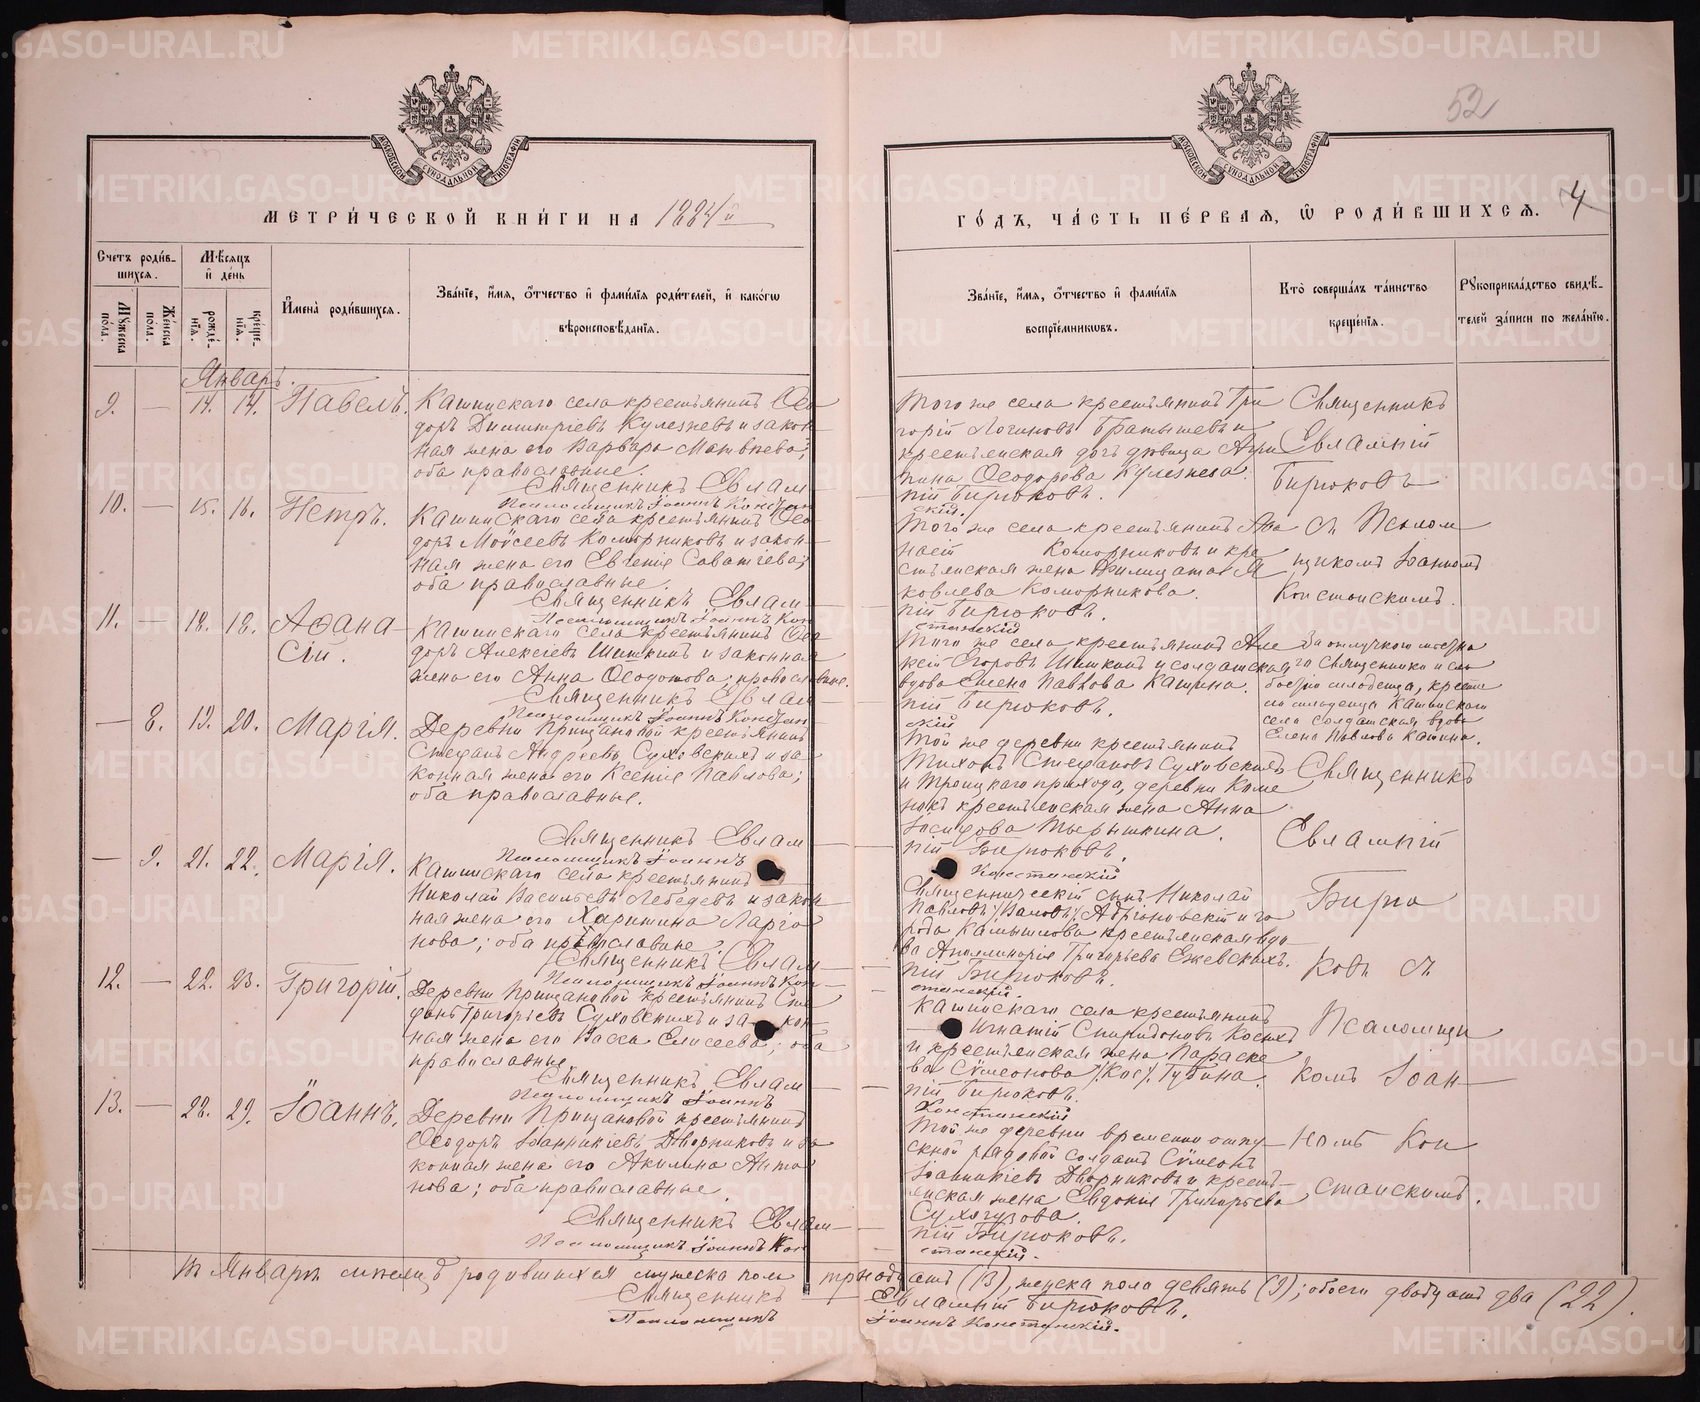 МЕТРИ́ЧЕСКОЙ КНИ́ГИ НА 1884й
ГО́ДЪ, ЧА́СТЬ ПЕ́РВАЯ, Ѿ РОДИ́ВШИХСЯ.
52
4
МОСКОВСКОЙ СѴНОДАЛЬНОЙ ТИПОГРАФІИ
МОСКОВСКОЙ СѴНОДАЛЬНОЙ ТИПОГРАФІИ
Счетъ роди́в-
шихся.
Мѣсяцъ
и́ де́нь
Мꙋжеска по́ла.
Же́нска по́ла.
рожде́-нїѧ.
креще́-нїѧ.
И҆мена̀ роди́вшихся.
Зва́нїе, и҆́мя, о҆́тчество и҆ фами́лїя роди́телей, и҆ како́гѡ
вѣроисповѣ́данїя.
Зва́нїе, и҆́мя, о҆́тчество и҆ фами́лїя
воспрїе́мникѡвъ.
Кто̀ соверша́лъ та́инство
креще́нїя.
Рꙋкоприкла́дство свидѣ́-
телей за́писи по жела́нїю.
Январь.
9. — 14. 14. Павелъ.
Кашинскаго села крестьянинъ Ѳео
доръ Димитріевъ Кулезневъ и закон-
ная жена его Варвара Матвѣева;
оба православные.
Священникъ Евлам-
Псаломщикъ Іоаннъ Констан
Того же села крестьянинъ Гри
горій Логиновъ Братышевъ и
крестьянская дочь дѣвица Агри
пина Ѳеодорова Кулезнева.
пій Бирюковъ.
скій.
Священникъ
Евлампій
Бирюковъ
10. — 15. 16. Петръ.
Кашинскаго села крестьянинъ Ѳео
доръ Моѵсеевъ Коморниковъ и закон-
ная жена его Евгенія Саватіева;
оба православные.
Священникъ Евлам-
Псаломщикъ Іоаннъ Кон
Того же села крестьянинъ Афа
насій Коморниковъ и кре
стьянская жена Филицата Я
ковлева Коморникова.
пій Бирюковъ.
станскій
съ Псалом
щикомъ Іоанномъ
Констанскимъ.
11. — 18. 18. Аѳана-
сій.
Кашинскаго села крестьянинъ Ѳео-
доръ Алексіевъ Шишкинъ и законная
жена его Анна Ѳеодотова; православные.
Священникъ Евлам-
Псаломщикъ Іоаннъ Констан-
Того же села крестьянинъ Але
ксій Егоровъ Шишкинъ и солдатская
вдова Елена Павлова Кашина.
пій Бирюковъ.
скій
За отлучкою мѣстна
го священника и сла
бостію младенца, крести
ла младенца Кашинскаго
села солдатская вдова
Елена Павлова Кашина.
— 8. 19. 20. Марія.
Деревни Прищановой крестьянинъ
Стефанъ Андреевъ Суховскихъ и за
конная жена его Ксенія Павлова;
оба православные.
Священникъ Евлам
Псаломщикъ Іоаннъ
Той же деревни крестьянинъ
Тихонъ Стефановъ Суховскихъ
и Троицкаго прихода, деревни Каме
нокъ крестьянская жена Анна
Іосифова Тырышкина.
пій Бирюковъ.
Констанскій
Священникъ
Евлампій
— 9. 21. 22. Марія.
Кашинскаго села крестьянинъ
Николай Васильевъ Лебедевъ и закон
ная жена его Харитина Ларіо
нова; оба православные.
Священникъ Евлам-
Псаломщикъ Іоаннъ Кон-
Священническій сынъ Николай
рода Камышлова крестьянская вдо-
ва Апполинарія Григорьева Ежевскихъ.
пій Бирюковъ.
станскій.
Бирю
ковъ съ
12. — 22. 23. Григорій.
Деревни Прищановой крестьянинъ Сте
фанъ Григорьевъ Суховскихъ и за-кон-
ная жена его Васса Елисеева; оба
православные.
Священникъ Евлам-
Псаломщикъ Іоаннъ
Кашинскаго села крестьянинъ
Игнатій Спиридоновъ Косыхъ
и крестьянская жена Параске
ва Сѵмеонова /:Кос:/ Губина.
пій Бирюковъ.
Констанскій
Псаломщи
комъ Іоан-
13. — 28. 29. Іоаннъ.
Деревни Прищановой крестьянинъ
Ѳеодоръ Іоанникіевъ Дворниковъ и за
конная жена его Акилина Анто
нова; оба православные.
Священникъ Евлам-
Псаломщикъ Іоаннъ Кон
Той же деревни временно отпу-
скной рядовой солдатъ Сѵмеонъ
Іоанникіевъ Дворниковъ и кресть-
янская жена Евдокія Григорьева
Сухогузова.
пій Бирюковъ.
станскій.
номъ Кон
станскимъ.
Въ Январѣ мѣсяцѣ родившихся мужеска пола тринадцать (13), женска пола девять (9); обоего двадцать два (22).
Священникъ Евлампій Бирюковъ.
Псаломщикъ Іоаннъ Констанскій.